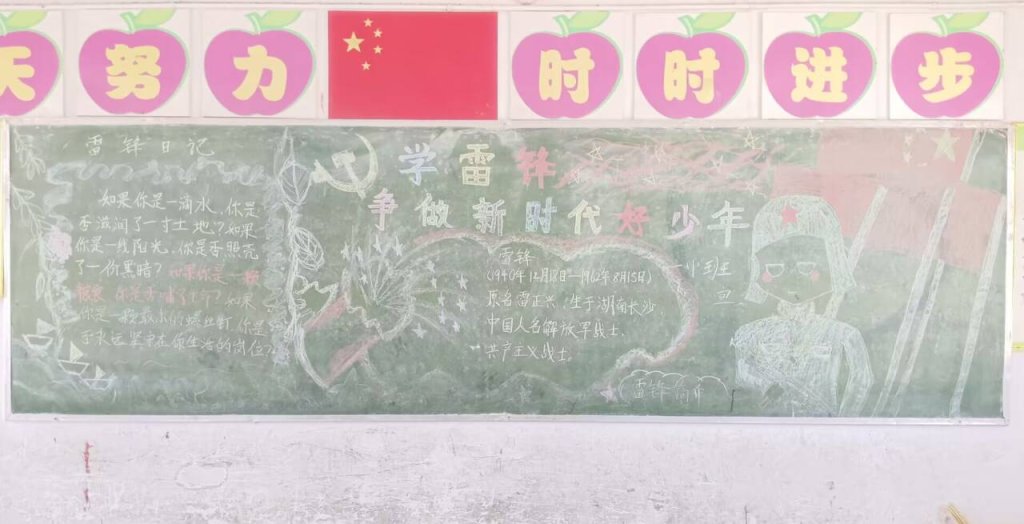 天努力 时时进步
雷锋日记
如果你是一滴水,你是
否滋润了一寸土地?如果
你是一线阳光,你是否照亮
了一份黑暗?如果你是一颗
粮食,你是否
你是一颗最小的螺丝钉,你是
否永远坚守在你生活的岗位?
学雷锋
争做新时代好少年
雷锋
(1940年12月18日—1962年8月15日)
原名雷正兴,生于湖南长沙
中国人名解放军战士,
共产主义战士。
雷锋简介